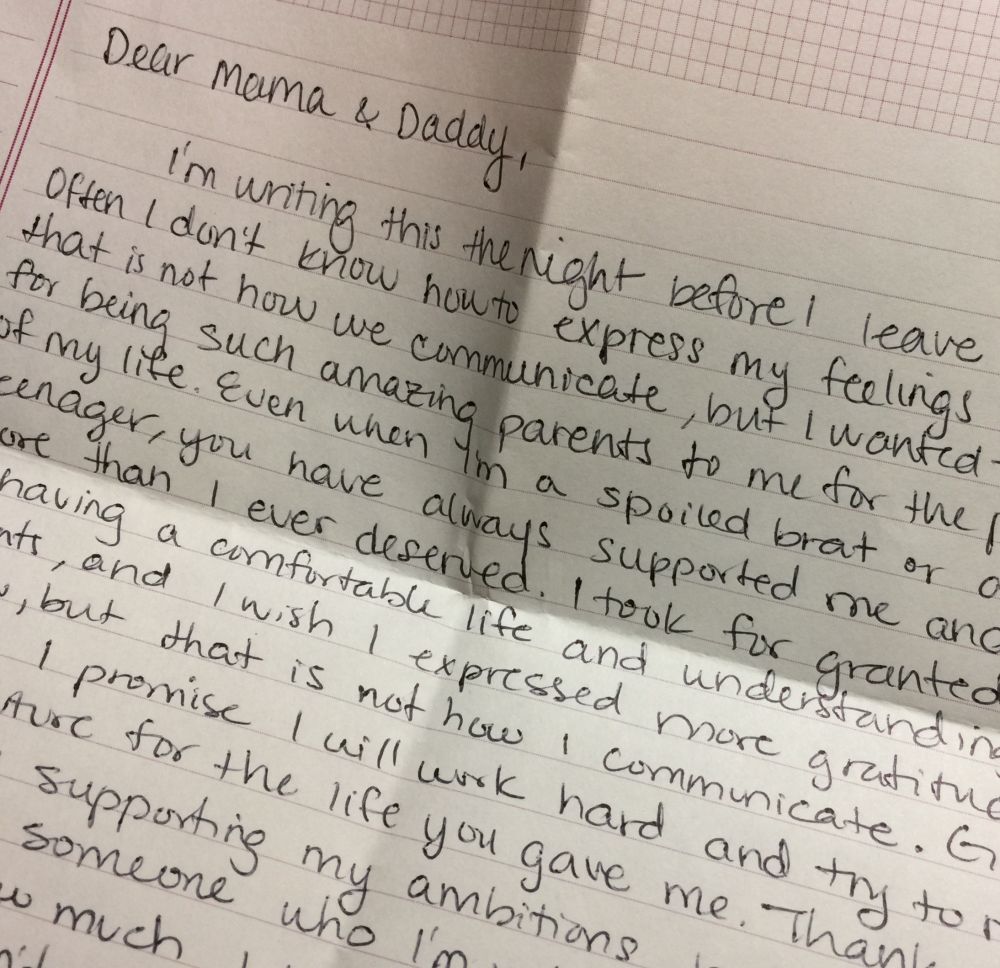 Dear Mama & Daddy,
I'm writing this the night before I leave
Often I don't know how to express my feelings
that is not how we communicate, but I wanted
for being such amazing parents to me for the
of my life. Even when I'm a spoiled brat or a
eenager, you have always supported me and
ore than I ever deserved. I took for granted
having a comfortable life and understanding
nts, and I wish I expressed more gratitud
, but that is not how I communicate. G
I promise I will work hard and try to
ture for the life you gave me. Thank
supporting my ambitions
someone who I'm
w much I